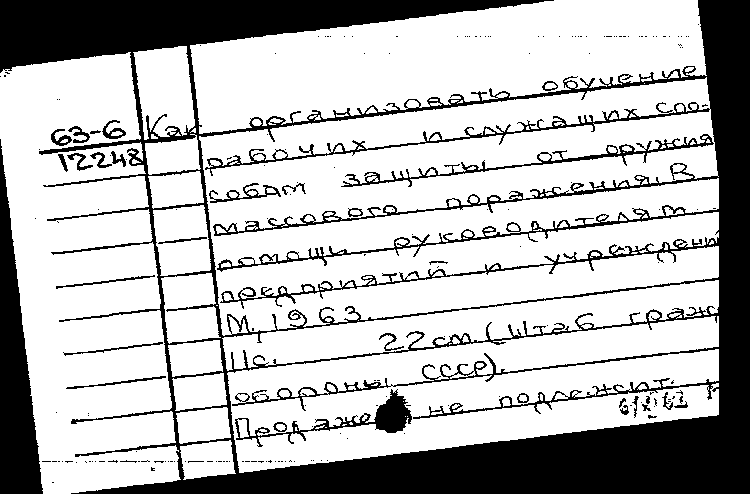 63-6 Как организовать обучение
12248 рабочих и служащих спо-
собам защиты от оружия
массового поражения. В
помощь руководителям
предприятий и учреждений
М., 1963.
11с. 22см. (Штаб гражд
обороны СССР).
Продаже не подлежит.